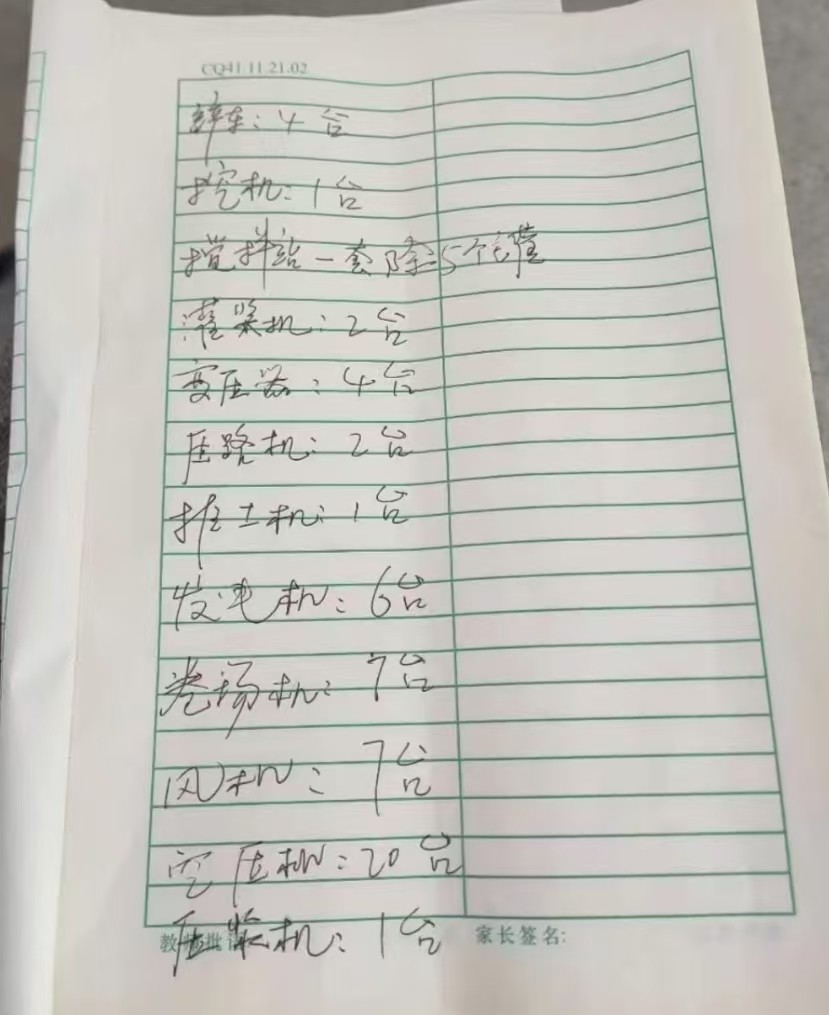 CQ41.11.21.02
车:4台
挖机:1台
搅拌站一套除5个罐
灌浆机:2台
变压器:4台
压路机:2台
推土机:1台
发电机:6台
卷场机:7台
风机:7台
空压机:20台
压浆机:1台
教师批 家长签名: